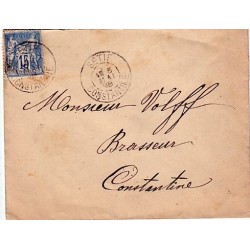 15
SETIF
CONSTANTINE
Monsieur Wolff
Brasseur
Constantine